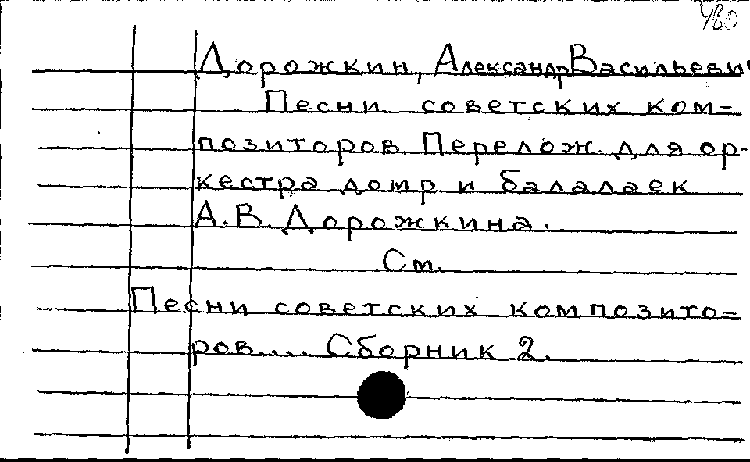 480
Дорожкин, Александр Васильевич
Песни советских ком=
позиторов. Перелож. для ор-
кестра домр и балалаек
А. В. Дорожкина.
См.
Песни советских композито=
ров.... Сборник 2.